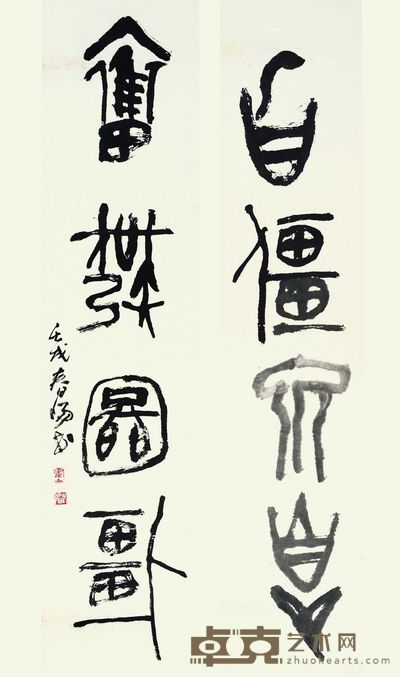 自彊不息
奮發圖彊
壬戌春
卓克艺术网
zhuokearts.com